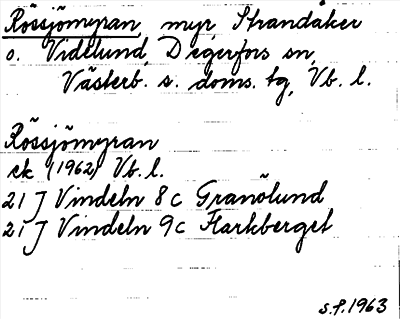 Rössjömyran myr, Strandåker
o. Videlund, Degerfors sn,
Västerb. s. doms. tg, Vb. l.
Rössjömyran
ek (1962) Vb. l.
21 J Vindeln 8c Granölund
21 J Vindeln 9c Harkberget
s.f. 1963